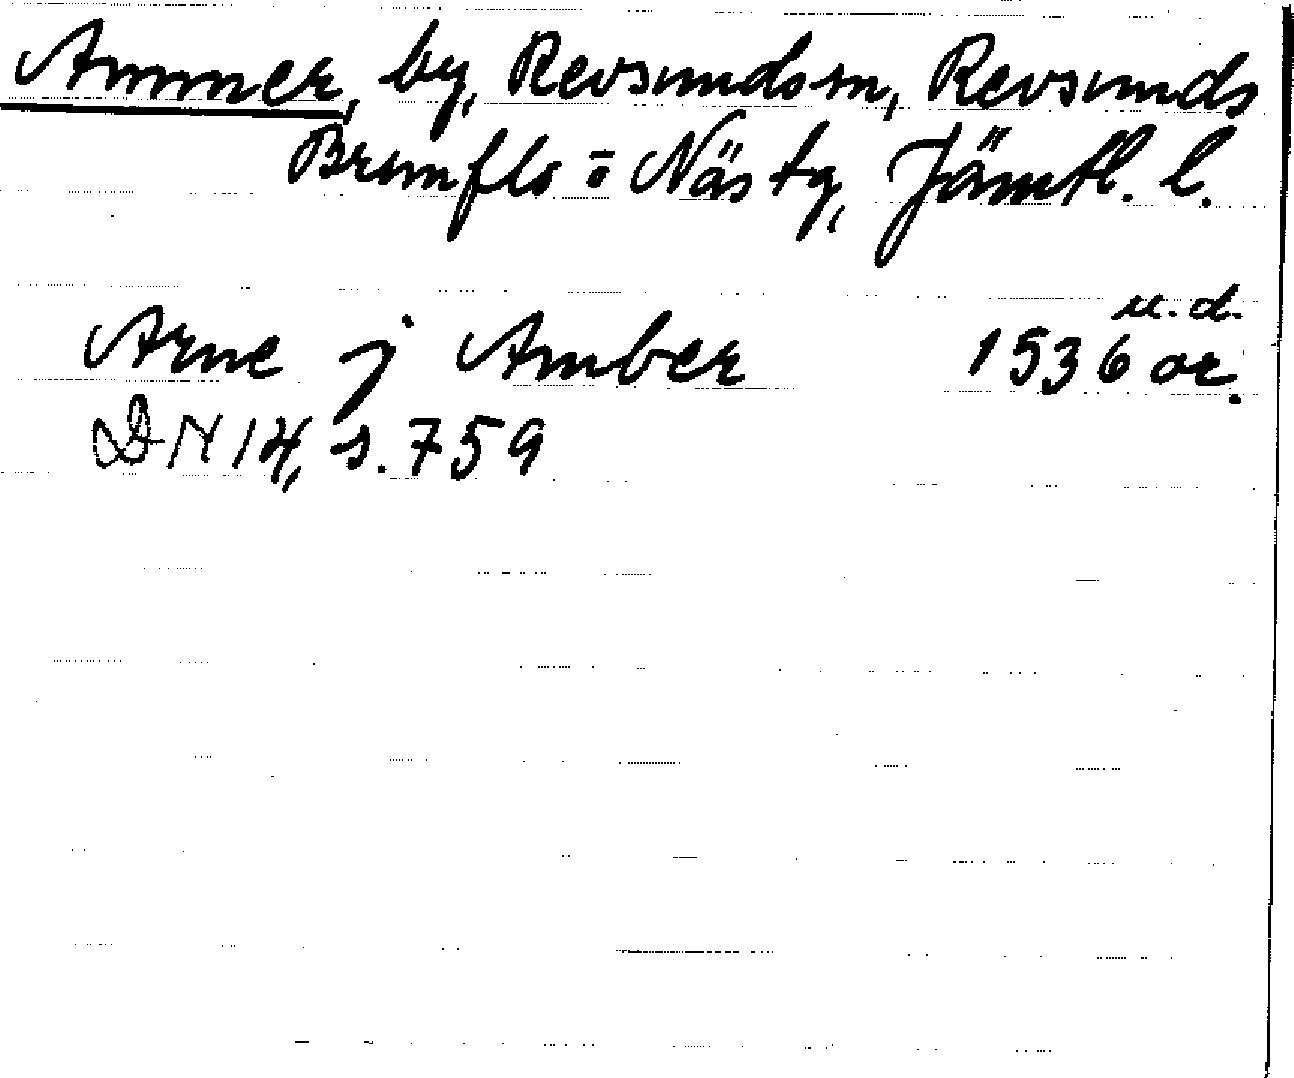 Ammer, by, Revsunds sn, Revsunds
Brunflo o Näs tg, Jämtl. l.
u.d.
Arne j Amber 1536 or.
DN 14, s. 759